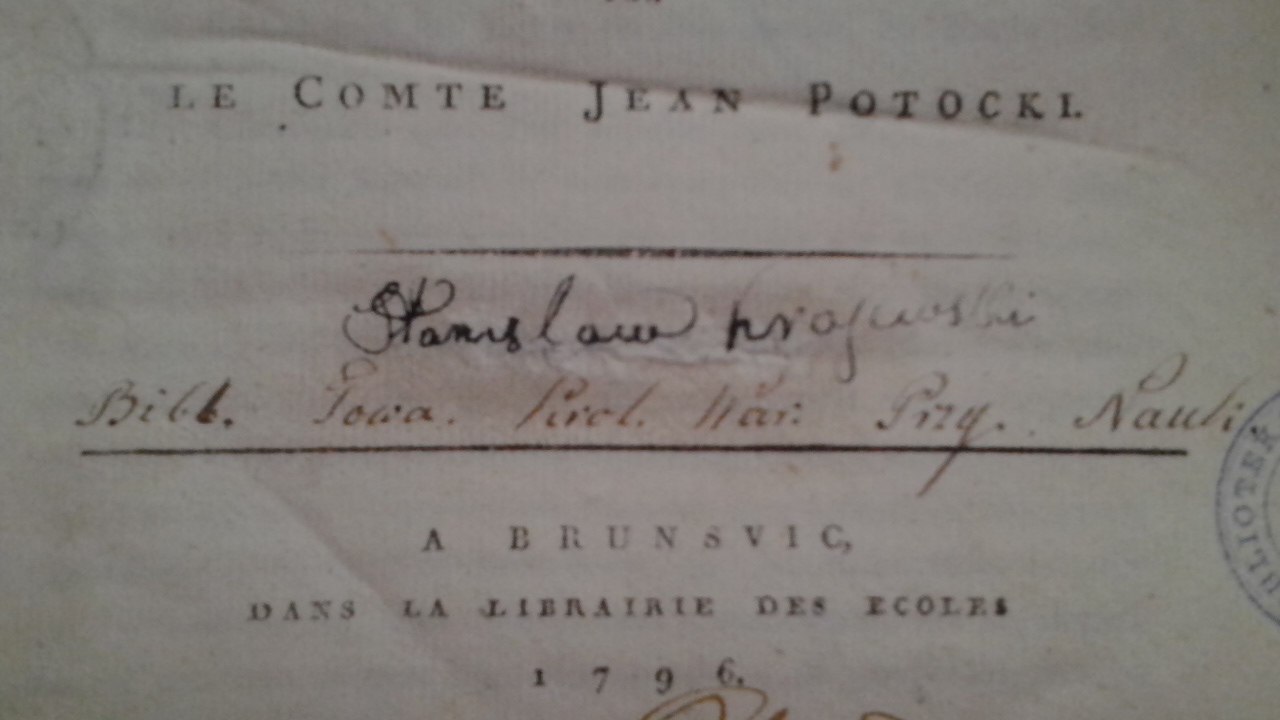 LE COMTE JEAN POTOCKI.
Stanislaw
Bibl. Towa. Krol. War: Przy. Nauk:
BLIOTEK
A BRUNSVIC,
DANS LA LIBRAIRIE DES ECOLES
1796.